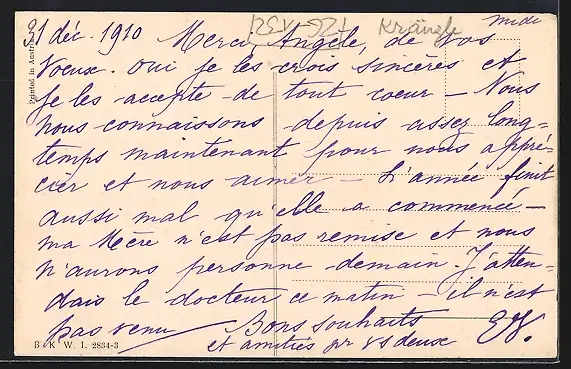 31 déc. 1910 Merci, Angèle, de vos
midi
Kränzle
voeux. Oui je les crois sincères et
je les accepte de tout coeur — Nous
nous connaissons depuis assez long=
temps maintenant pour nous appré-
cier et nous aimer — L'année finit
aussi mal qu'elle a commencé —
ma Mère n'est pas remise et nous
n'aurons personne demain. J'atten-
dais le docteur ce matin — il n'est
pas venu Bons souhaits
et amitiés pr vs deux
Printed in Austria
B.K.W.I. 2834-3